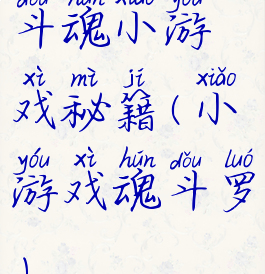 dǒu hún xiǎo yóu
斗魂小游
xì mì jí xiǎo
戏秘籍(小
yóu xì hún dǒu luó
游戏魂斗罗
)